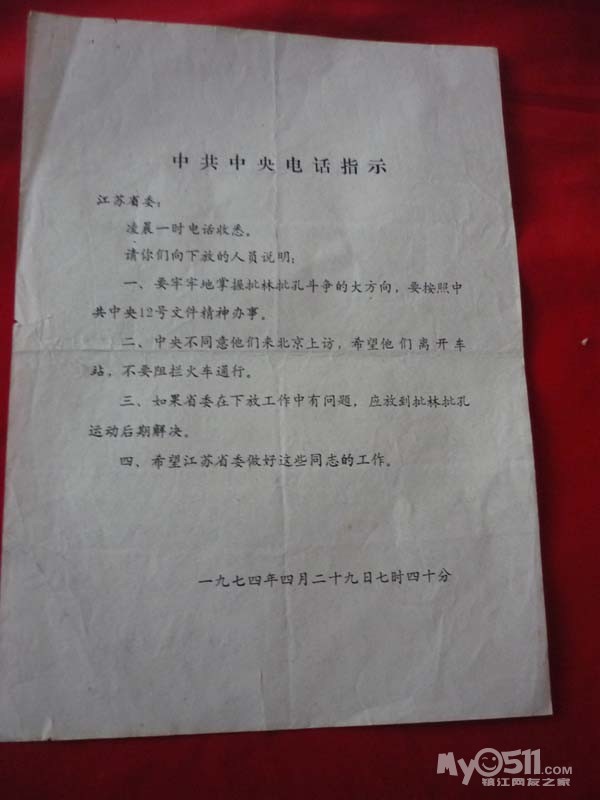 中共中央电话指示
江苏省委：
凌晨一时电话收悉。
请你们向下放的人员说明：
一、要牢牢地掌握批林批孔斗争的大方向，要按照中
共中央12号文件精神办事。
二、中央不同意他们来北京上访，希望他们离开车
站，不要阻拦火车通行。
三、如果省委在下放工作中有问题，应放到批林批孔
运动后期解决。
四、希望江苏省委做好这些同志的工作。
一九七四年四月二十九日七时四十分
My0511.com
镇江网友之家